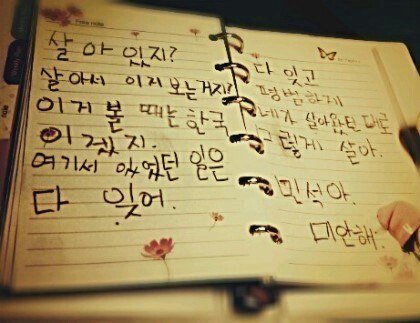 살아있지?
살아서 이거 보는거지?
이거 볼 때는 한국
이겠지.
여기서 있었던 일은
다 잊어.
다 잊고
평범하게
네가 살아왔던 대로
그렇게 살아.
민석아.
미안해.